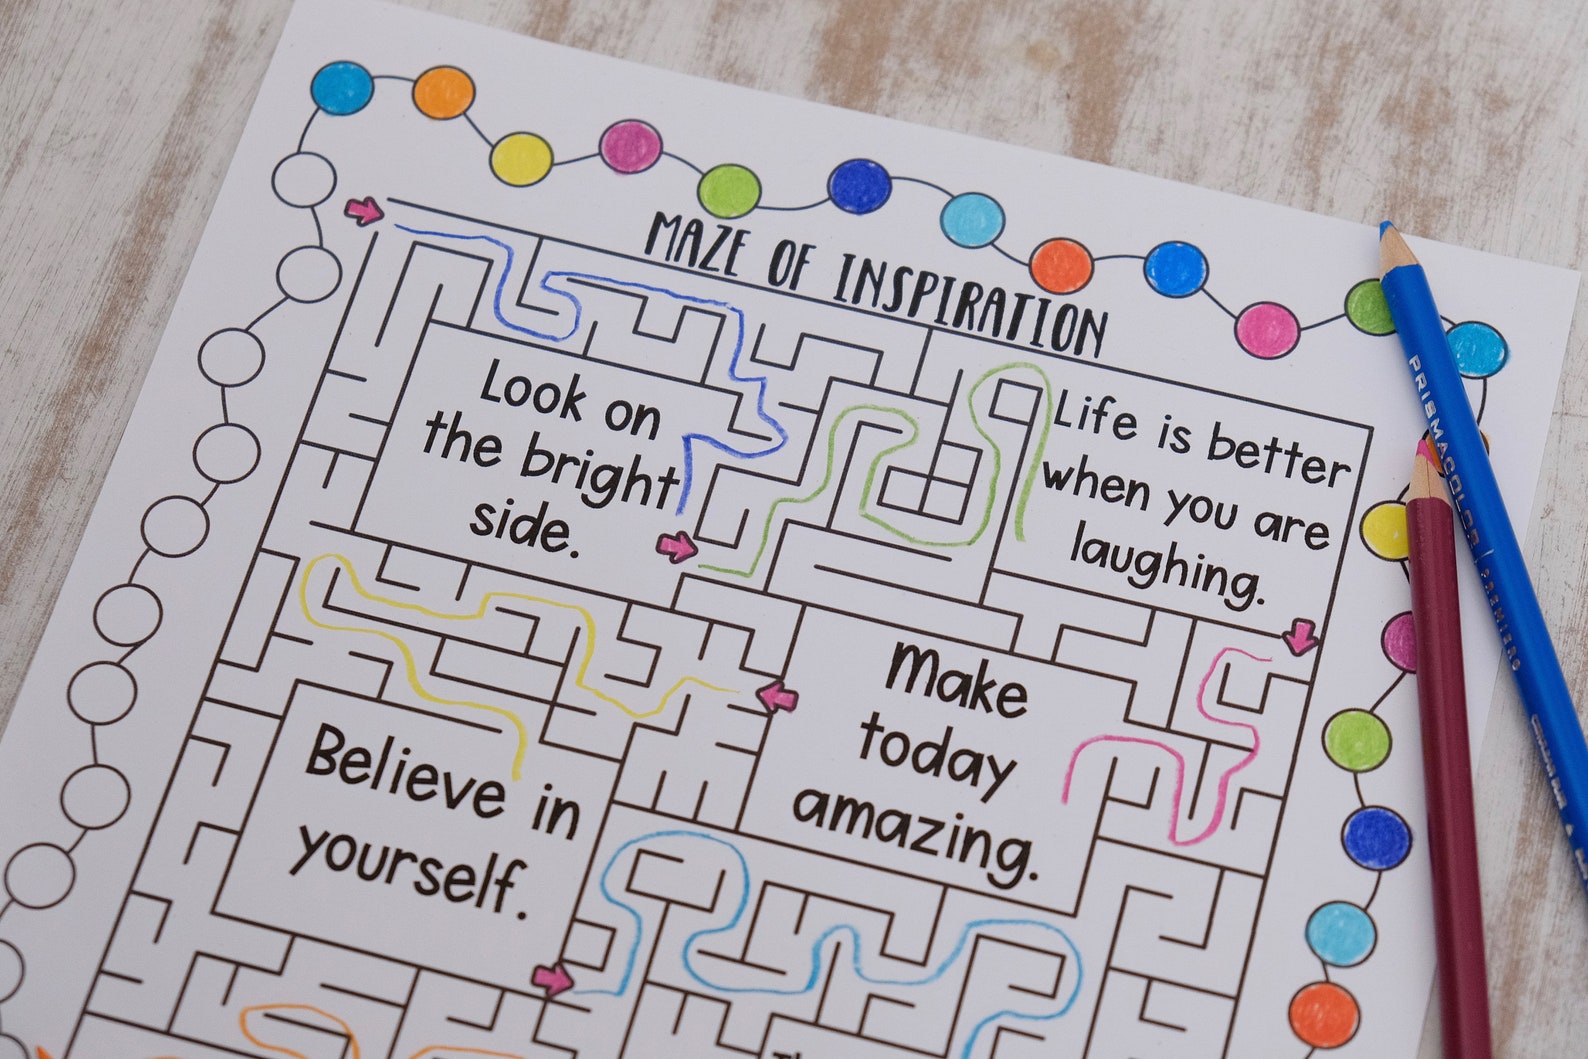 MAZE OF INSPIRATION
Look on
the bright
side.
Life is better
when you are
laughing.
Make
today
amazing.
Believe in
yourself.
PRISMACOLOR | PREMIER